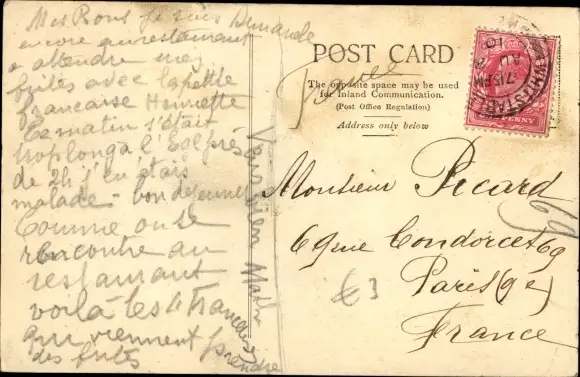 Mes Bons je suis
encore au restaurant
a attendre mes
frites avec la petite
Francaise Henriette
Ce matin s'était
trop long a l'
de 2h j'en étais
malade - bon dejeuner
Comme on se
rencontre au
restaurant
voilà les 4 Francaises
qui viennent prendre
des frites
POST CARD
The opposite space may be used
for Inland Communication.
(Post Office Regulation)
Address only below
WHITSTABLE
7.15 PM
AU
PENNY
Monsieur Picard
69 rue Condorcet 69
Paris (9e)
France
£3